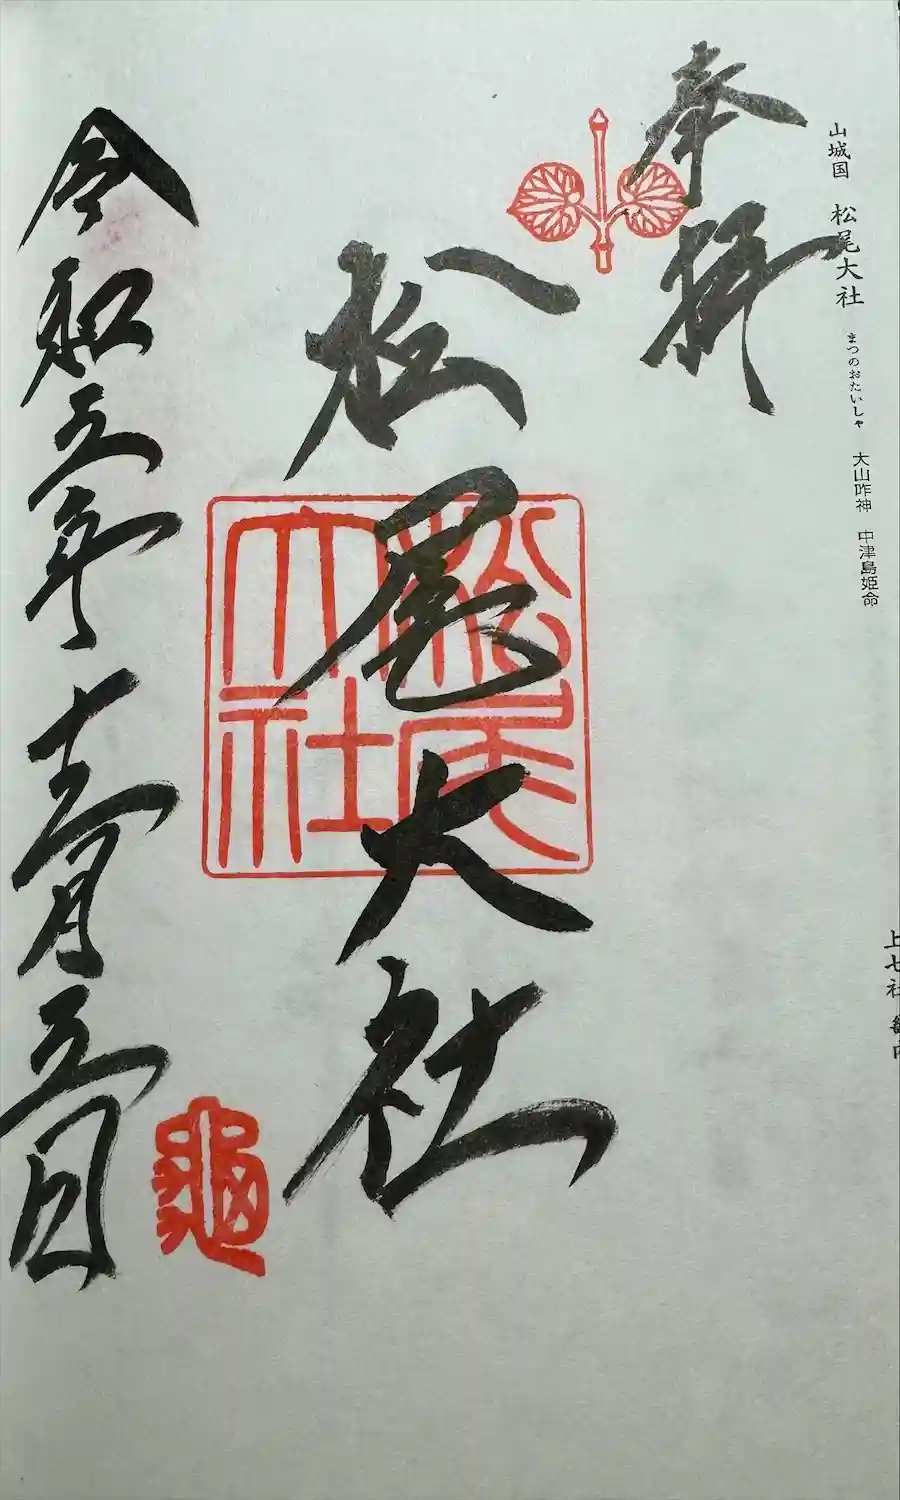 山城国 松尾大社 まつのおたいしゃ 大山咋神 中津島姫命
上七社
奉拝
松尾大社
松尾大社
令和五年十二月五日
龜